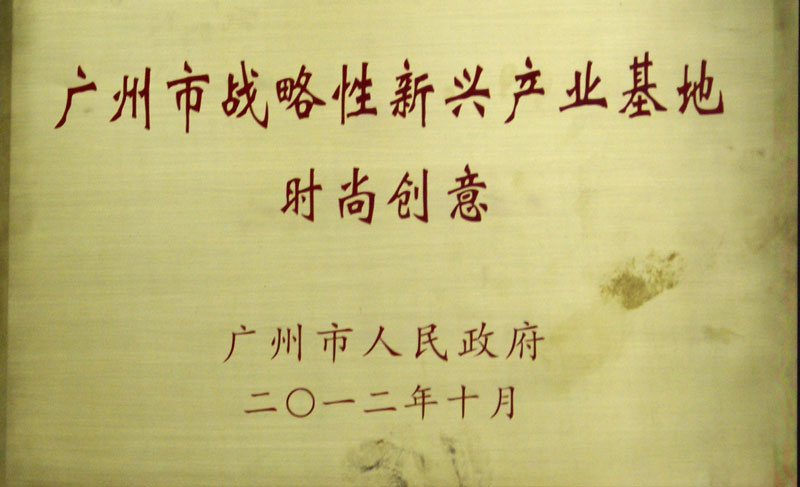 广州市战略性新兴产业基地
时尚创意
广州市人民政府
二〇一二年十月